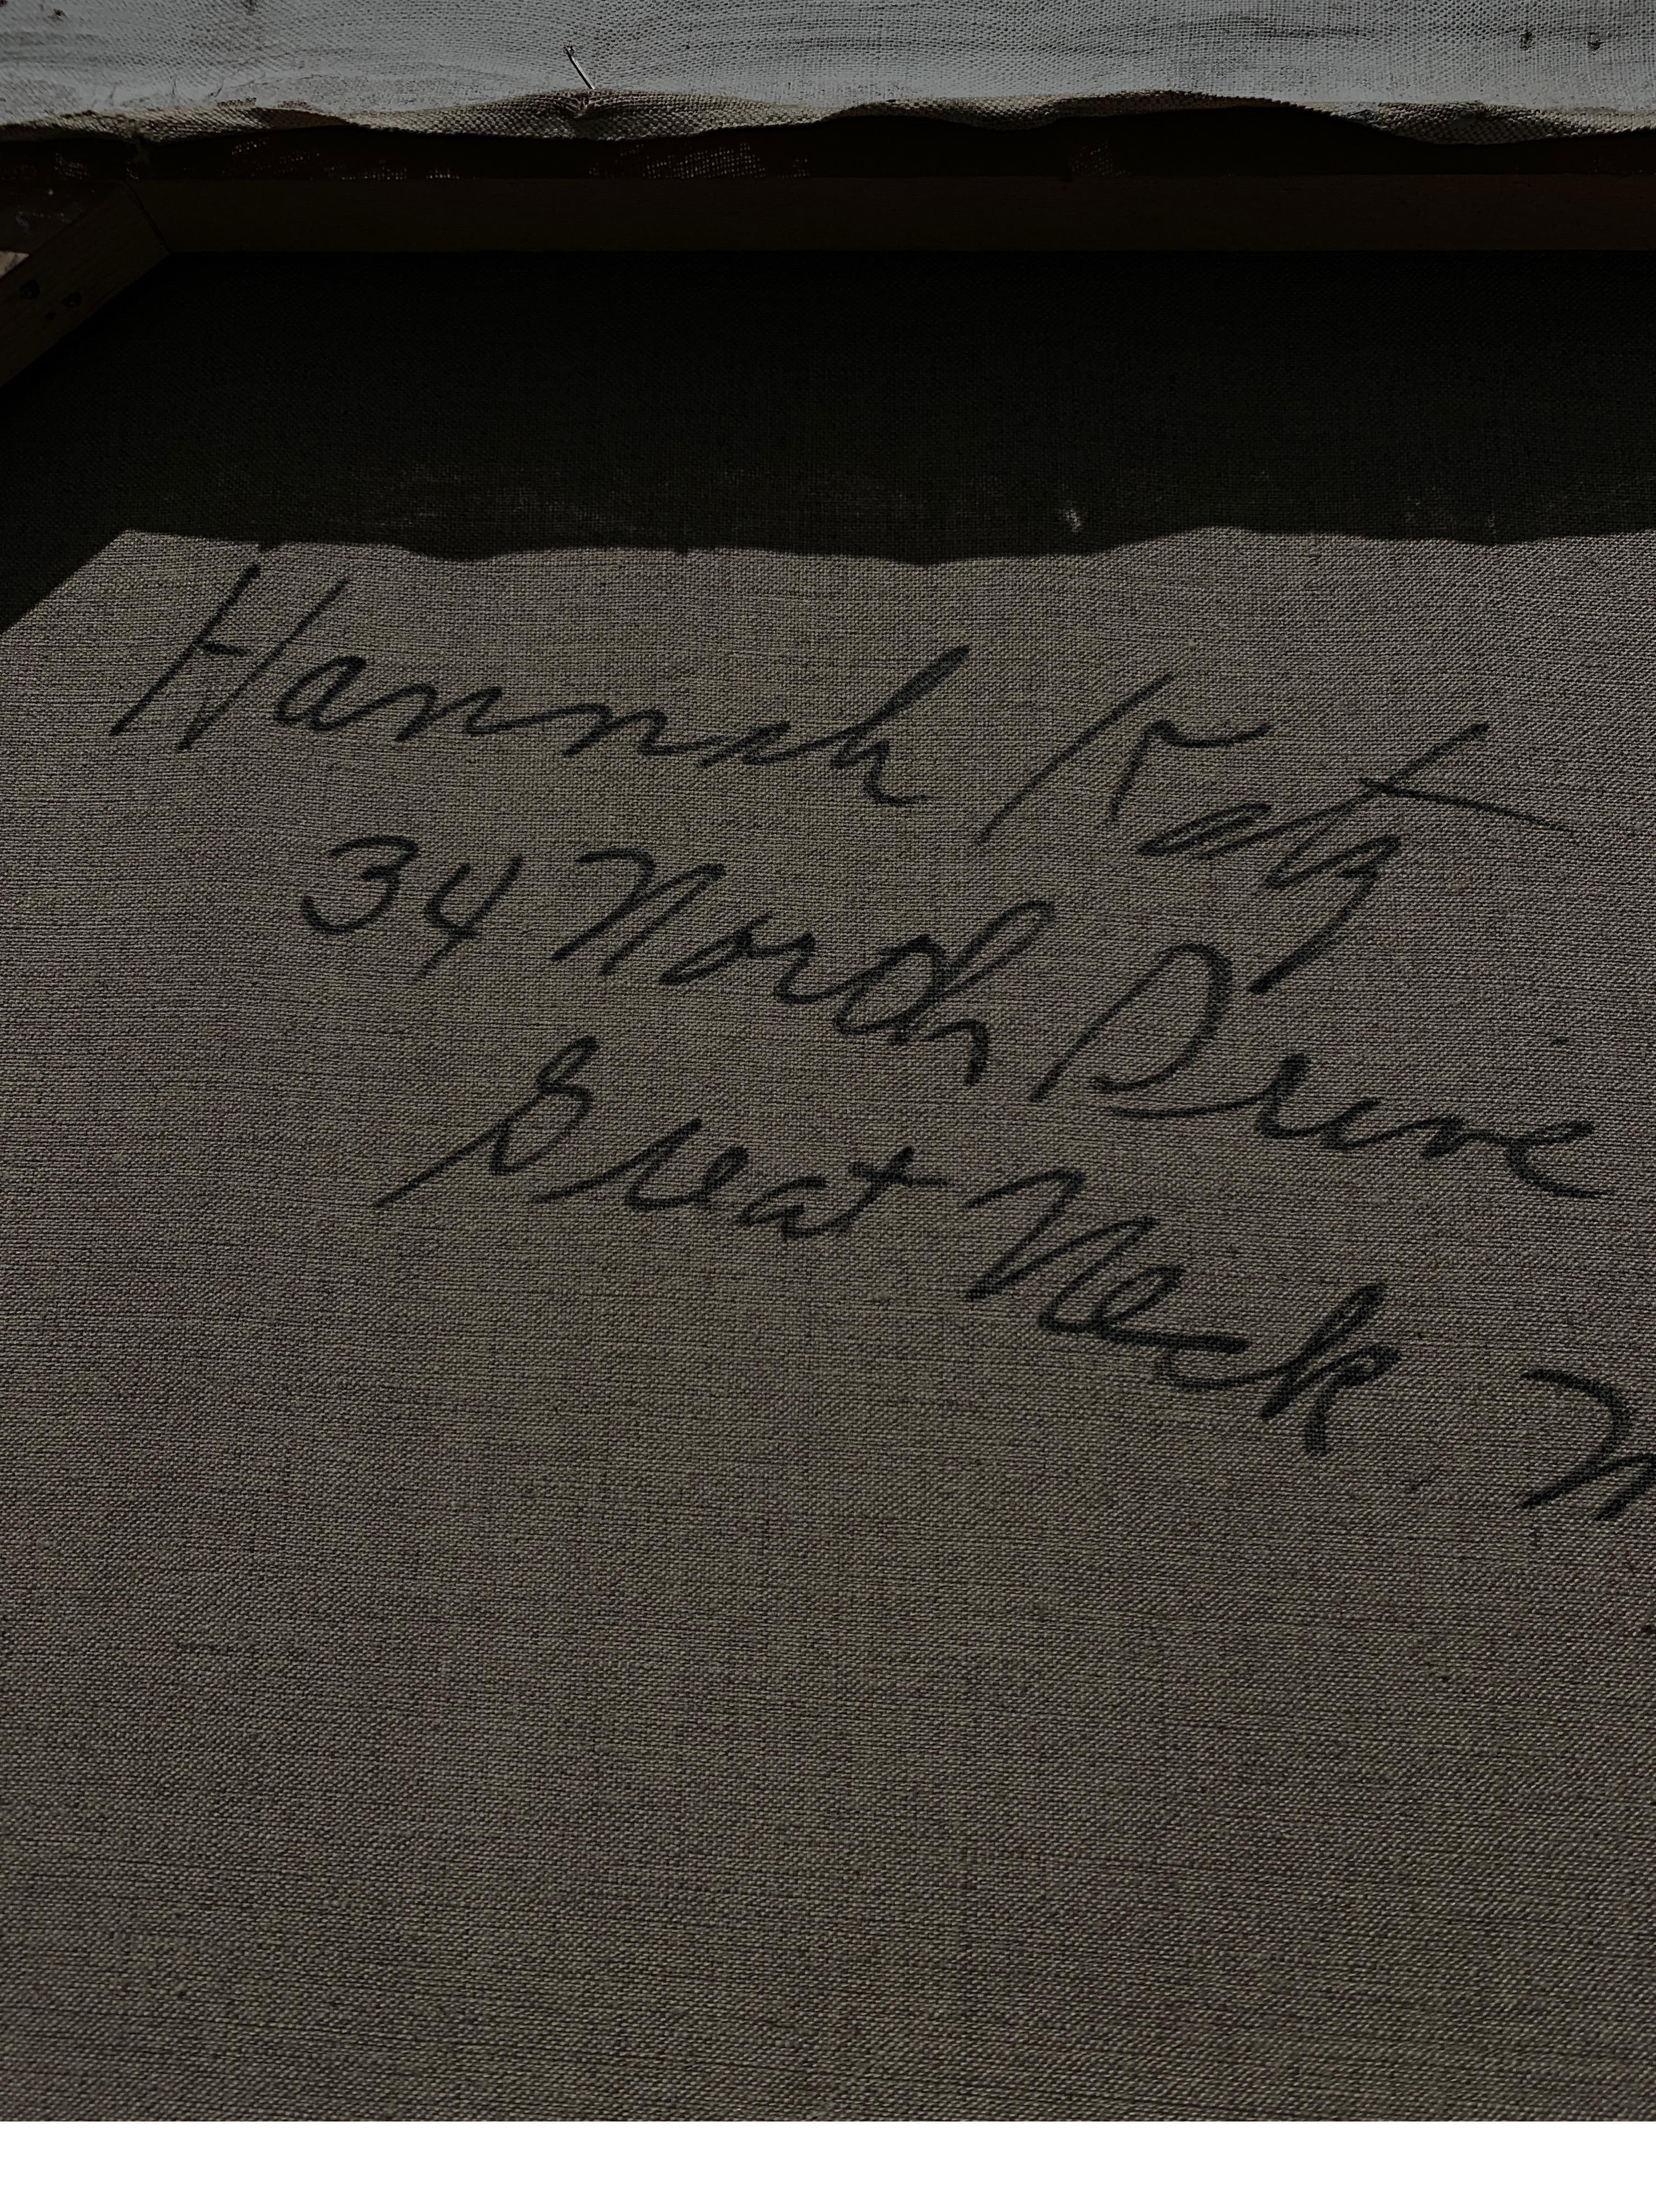 Hannah Katz
34 North Drive
Great Neck N